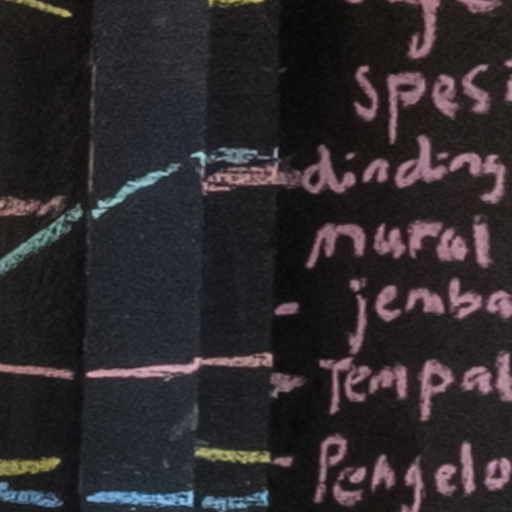 spesi
dinding
mural
jemba
Tempat
Pengelo